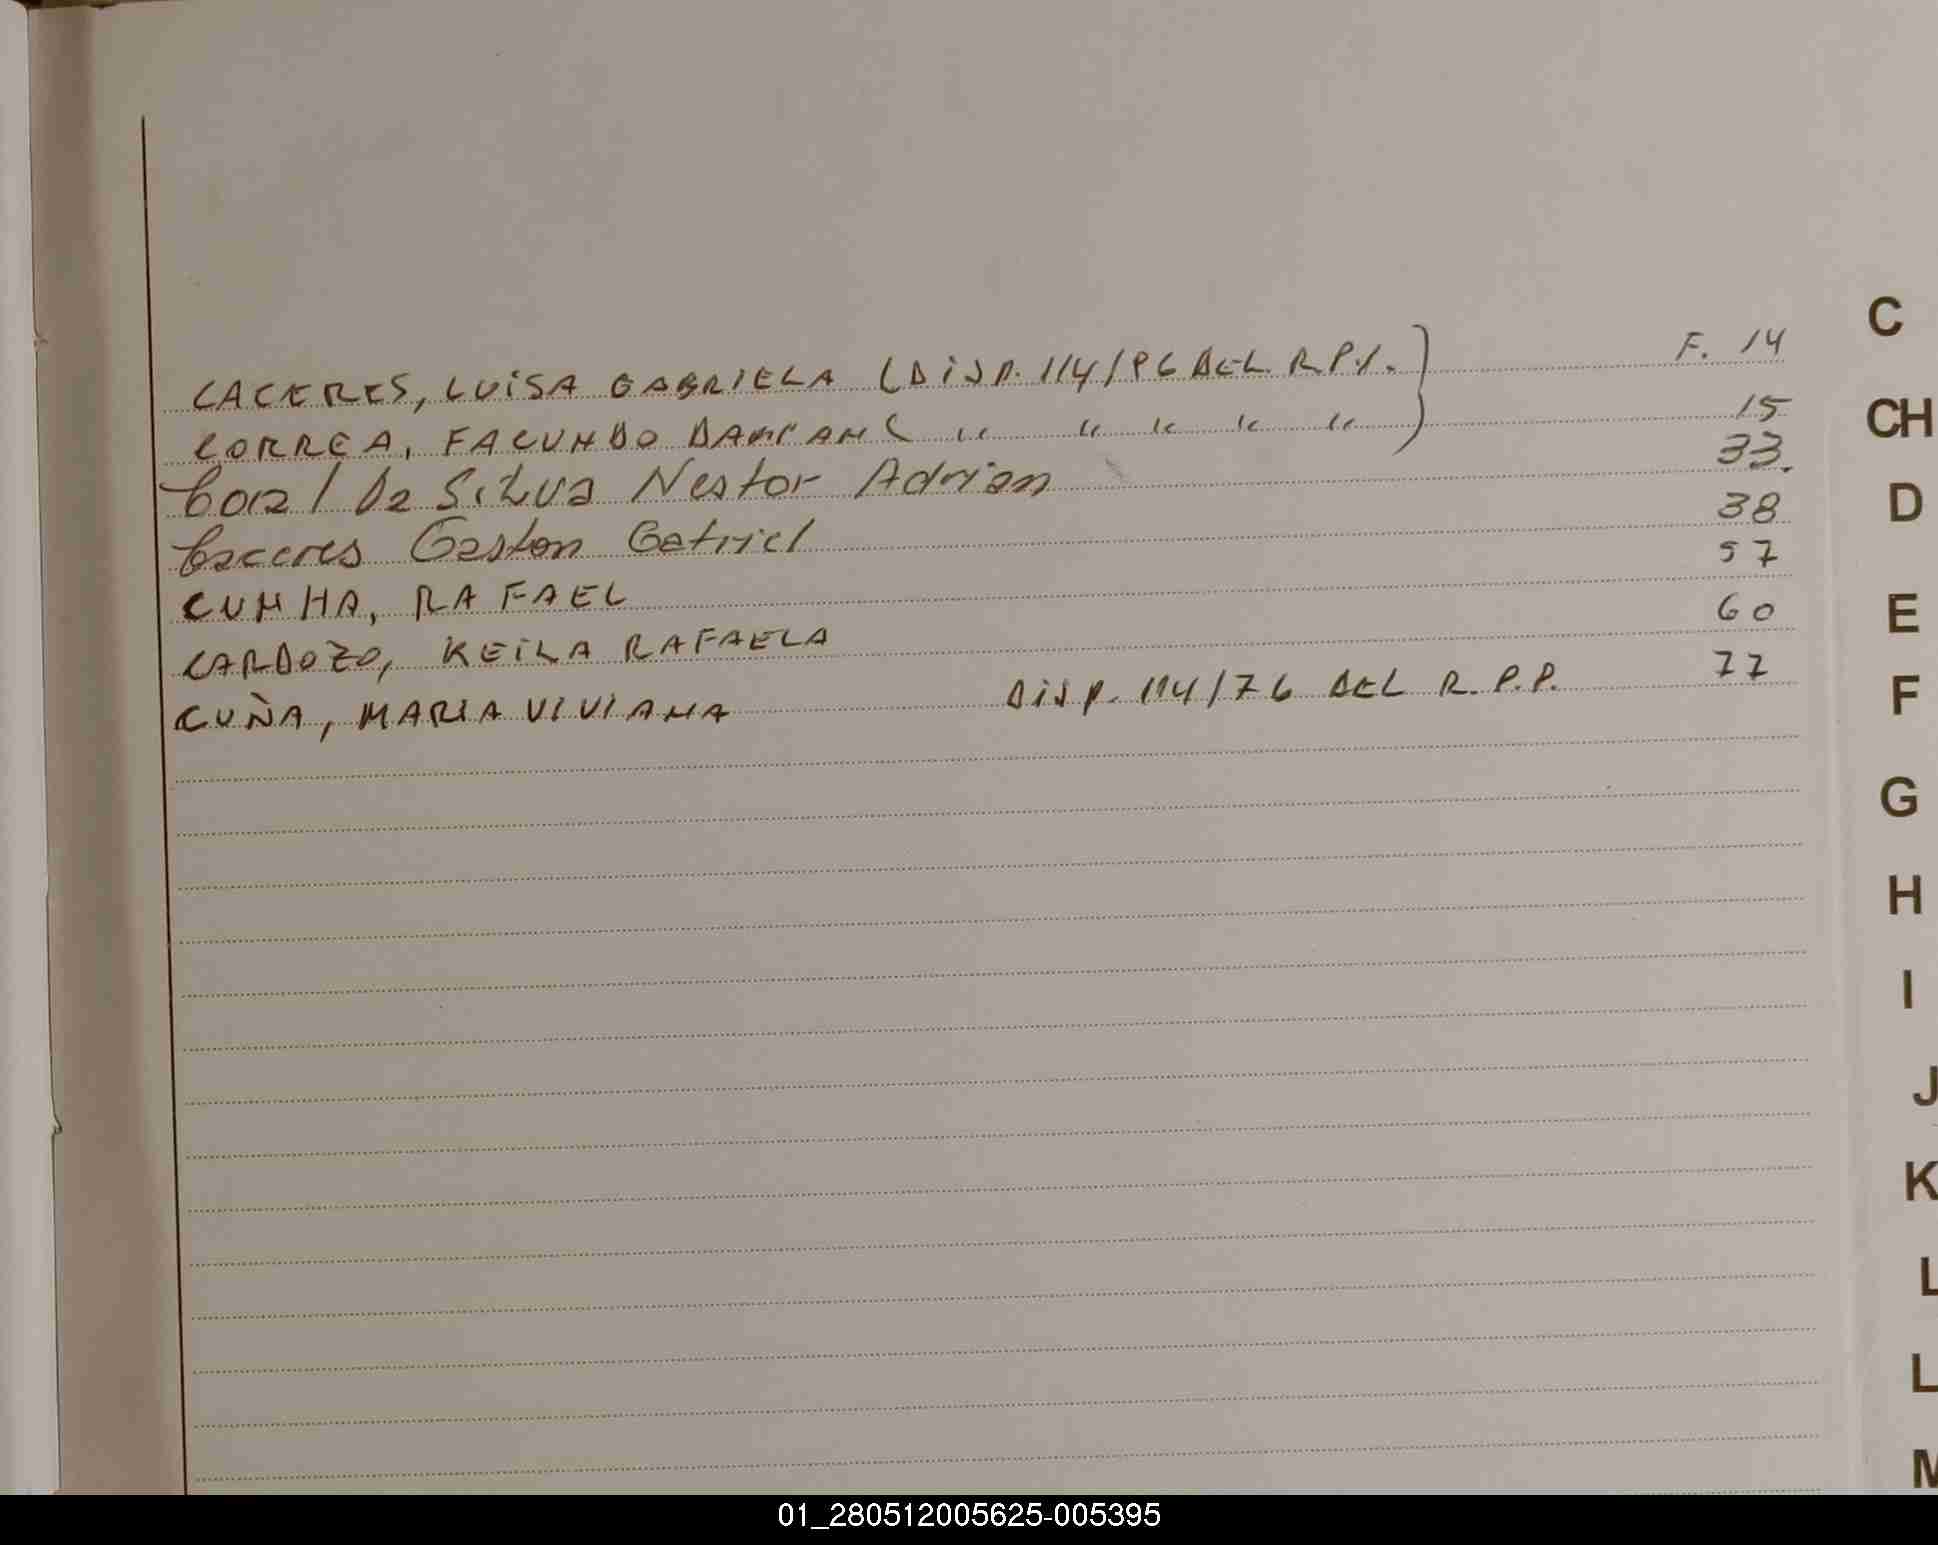 CACERES, LUISA GABRIELA (DISP. 114/96 DEL R.P.P. } F. 14
CORREA, FACUNDO DAMIAN ( " " " " " 15
Da Silva Nestor Adrian 33.
Caceres Gaston Gabriel 38
CUNHA, RAFAEL 57
CARDOZO, KEILA RAFAELA 60
CUÑA, MARIA VIVIANA DISP. 114/76 DEL R.P.P. 77
C
CH
D
E
F
G
H
I
J
K
L
L
M
01_280512005625-005395